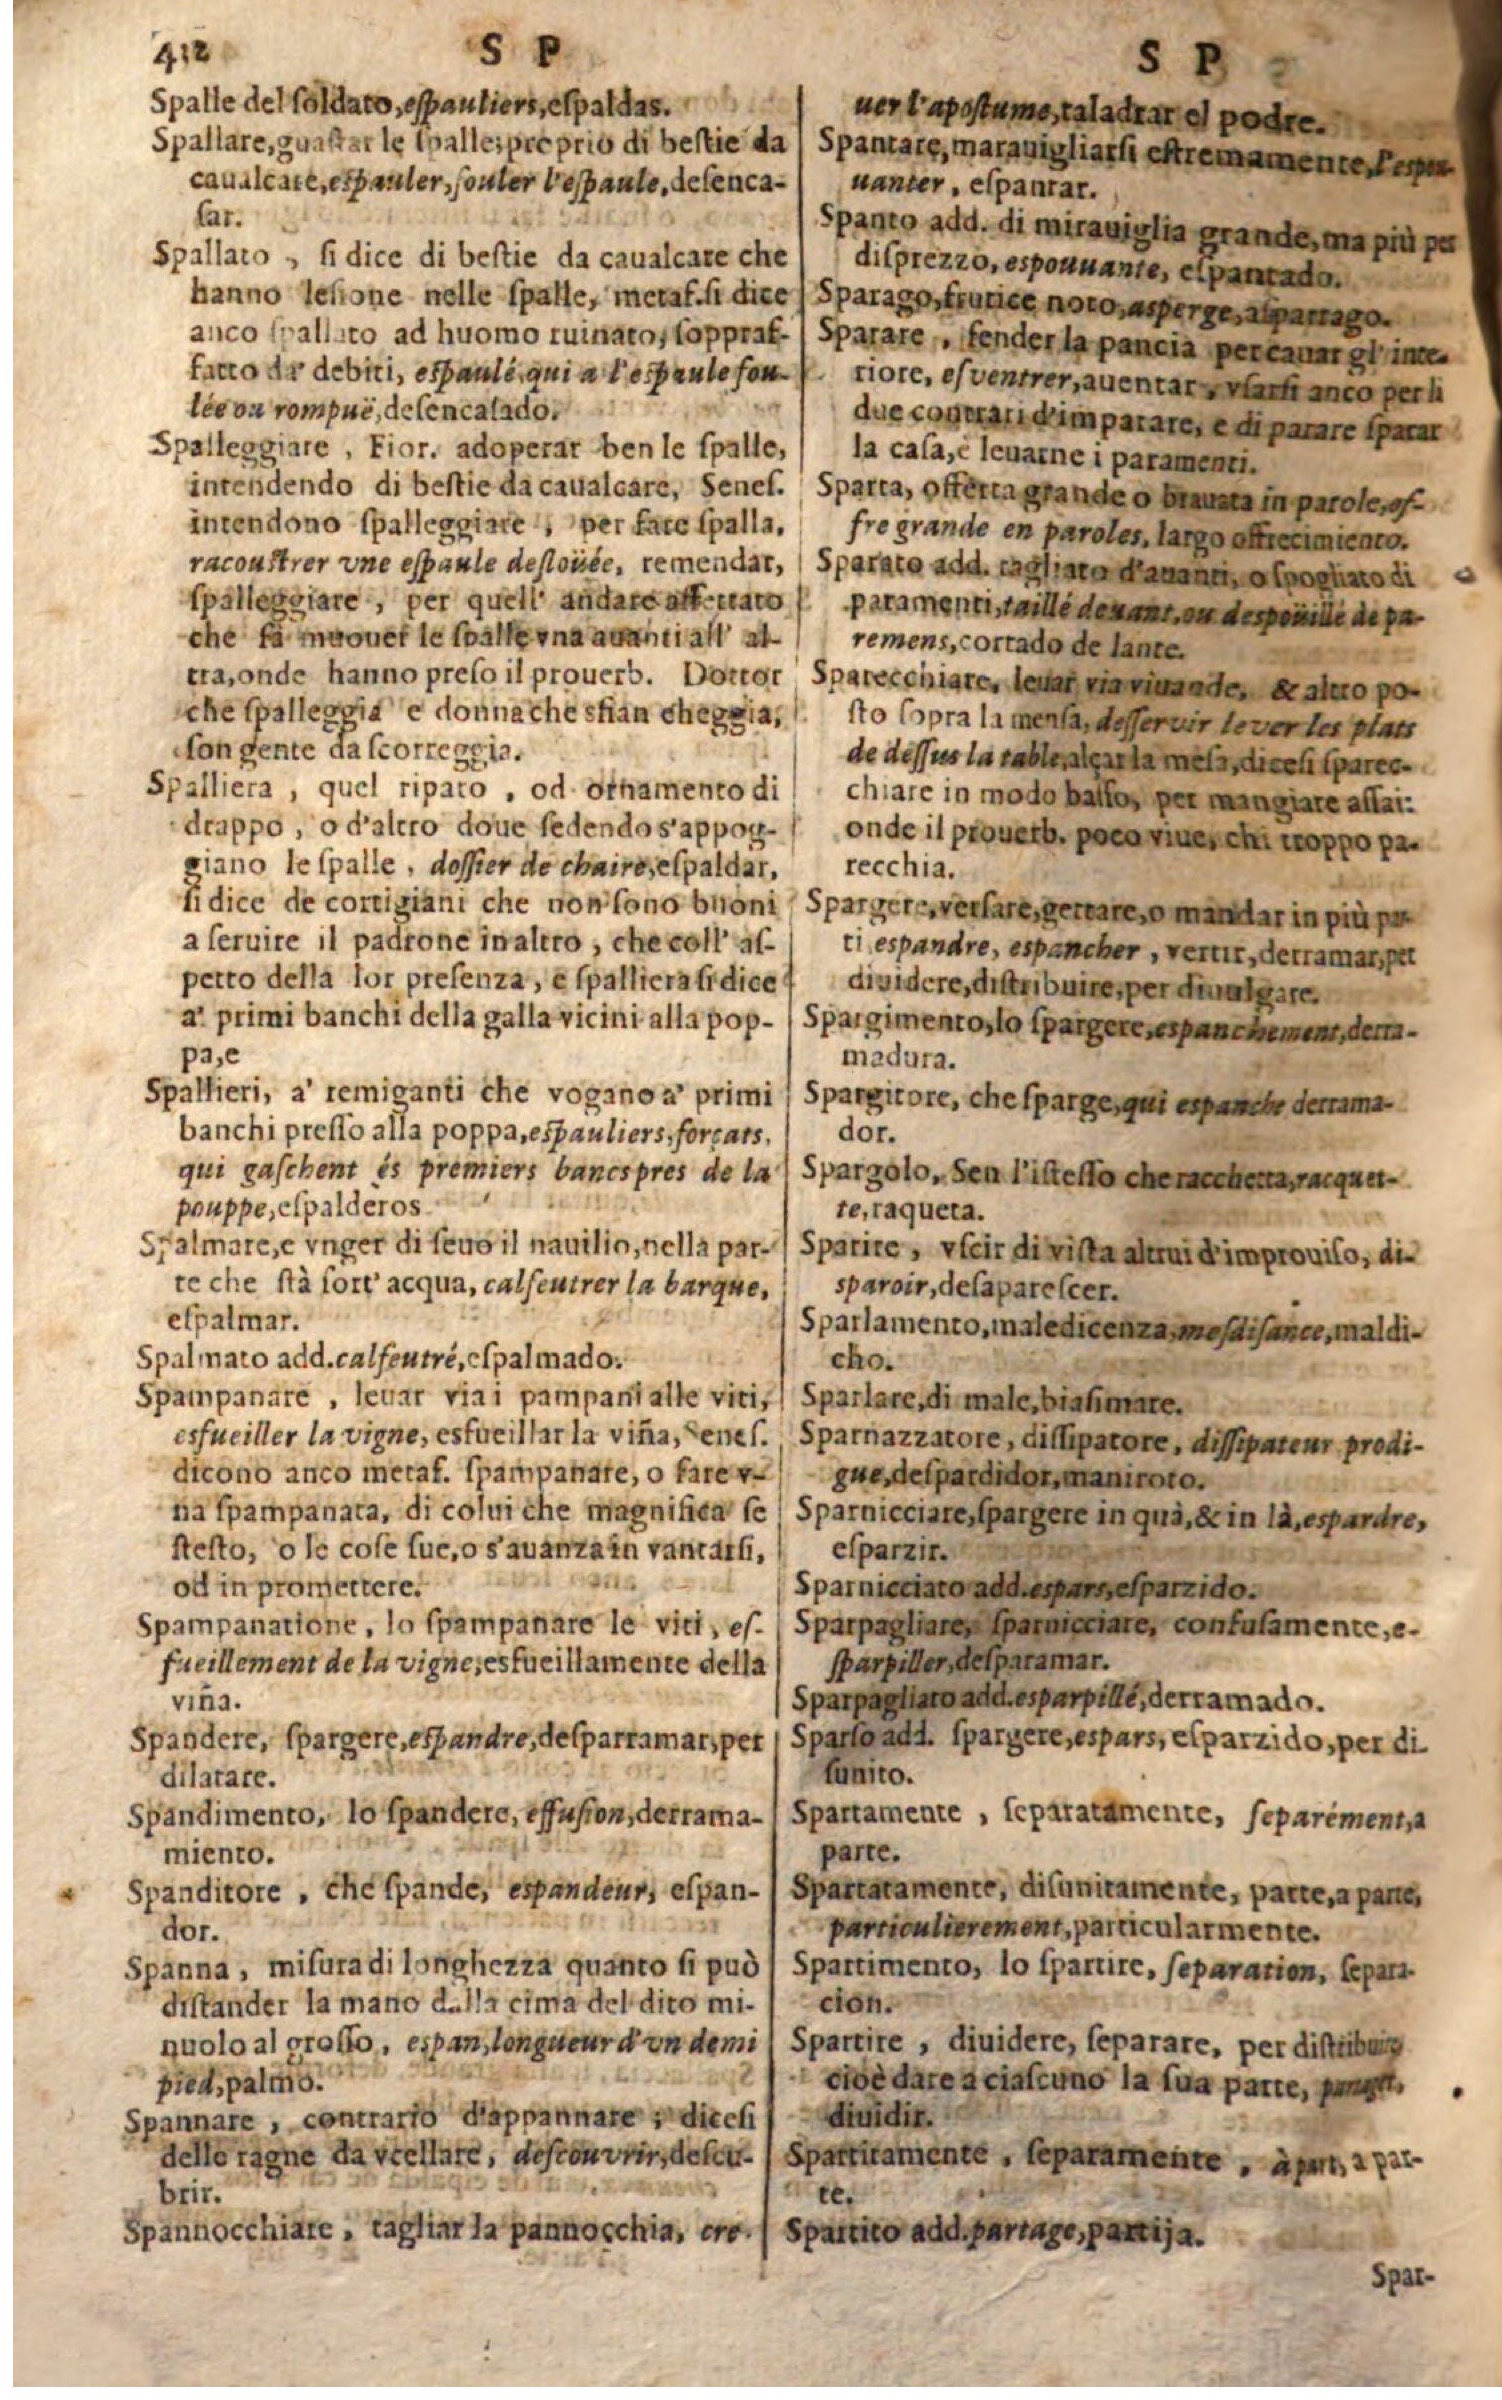 412 S P
Spalle del ſoldato, eſpauliers, eſpaldas.
Spallare, guaſtar le ſpalle; proprio di beſtie da
caualcare, eſpauler, fouler l'eſpaule, deſenca-
ſar.
Spallato, ſi dice di beſtie da caualcare che
hanno leſione nelle ſpalle, metaf. ſi dice
anco ſpallato ad huomo ruinato, ſoppraf-
fatto da' debiti, eſpaulé, qui a l'eſpaule fou-
lée ou rompuë, deſencaſado.
Spalleggiare, Fior. adoperar ben le ſpalle,
intendendo di beſtie da caualcare, Seneſ.
intendono ſpalleggiare, per fare ſpalla,
racouſtrer vne eſpaule deſloüée, remendar,
ſpalleggiare, per quell' andare affettato
che fà muouer le ſpalle vna auanti all' al-
tra, onde hanno preſo il prouerb. Dottor
che ſpalleggia e donna che sfian cheggia,
ſon gente da ſcorreggia.
Spalliera, quel riparo, od ornamento di
drappo, o d'altro doue ſedendo s'appog-
giano le ſpalle, doſſier de chaire, eſpaldar,
ſi dice de cortigiani che non ſono buoni
a ſeruire il padrone in altro, che coll' aſ-
petto della lor preſenza, e ſpalliera ſi dice
a' primi banchi della galla vicini alla pop-
pa, e
Spallieri, a' remiganti che vogano a' primi
banchi preſſo alla poppa, eſpauliers, forçats,
qui gaſchent és premiers bancs pres de la
pouppe, eſpalderos
Spalmare, e vnger di ſeuo il nauilio, nella par-
te che ſtà ſott' acqua, calfeutrer la barque,
eſpalmar.
Spalmato add. calfeutré, eſpalmado.
Spampanare, leuar via i pampani alle viti,
esfueiller la vigne, esfueillar la viña, Seneſ.
dicono anco metaf. ſpampanare, o fare v-
na ſpampanata, di colui che magnifica ſe
ſteſſo, o le coſe ſue, o s'auanza in vantarſi,
od in promettere.
Spampanatione, lo ſpampanare le viti, eſ-
fueillement de la vigne, esfueillamente della
viña.
Spandere, ſpargere, eſpandre, deſparramar, per
dilatare.
Spandimento, lo ſpandere, effuſion, derrama-
miento.
Spanditore, che ſpande, espandeur, eſpan-
dor.
Spanna, miſura di longhezza quanto ſi può
diſtander la mano dalla cima del dito mi-
nuolo al groſſo, espan, longueur d'vn demi
pied, palmo.
Spannare, contrario d'appannare; diceſi
delle ragne da vcellare, deſcouvrir, deſcu-
brir.
Spannocchiare, tagliar la pannocchia, cre-
S P
uer l'apoſtume, taladrar el podre.
Spantare, marauigliarſi eſtremamente, s'espou-
uanter, eſpantar.
Spanto add. di mirauiglia grande, ma più per
diſprezzo, espouuante, eſpantado.
Sparago, frutice noto, asperge, aſparrago.
Sparare, fender la pancia per cauar gl' inte-
riore, eſventrer, auentar, vſarſi anco per li
due contrari d'imparare, e di parare ſparar
la caſa, è leuarne i paramenti.
Sparta, offerta grande o brauata in parole, of-
fre grande en paroles, largo offrecimiento.
Sparato add. tagliato d'auanti, o ſpogliato di
paramenti, taillé deuant, ou despoüillé de pa-
remens, cortado de lante.
Sparecchiare, leuar via viuande, & altro po-
ſto ſopra la menſa, deſſervir lever les plats
de deſſus la table, alçar la meſa, diceſi ſparec-
chiare in modo baſſo, per mangiare aſſai:
onde il prouerb. poco viue, chi troppo pa-
recchia.
Spargere, verſare, gettare, o mandar in più par-
ti espandre, espancher, vertir, derramar, per
diuidere, diſtribuire, per diuulgare.
Spargimento, lo ſpargere, espanchement, derra-
madura.
Spargitore, che ſparge, qui espanche derrama-
dor.
Spargolo, Sen l'iſteſſo che racchetta, racquet-
te, raqueta.
Sparire, vſcir di viſta altrui d'improuiſo, di-
sparoir, deſapareſcer.
Sparlamento, maledicenza, meſdiſance, maldi-
cho.
Sparlare, di male, biaſimare.
Sparnazzatore, diſſipatore, diſſipateur prodi-
gue, deſpardidor, maniroto.
Sparnicciare, ſpargere in quà, & in là, espardre,
eſparzir.
Sparnicciato add. espars, eſparzido.
Sparpagliare, ſparnicciare, confuſamente, e-
ſparpiller, deſparamar.
Sparpagliato add. esparpillé, derramado.
Sparſo add. ſpargere, espars, eſparzido, per di
ſunito.
Spartamente, ſeparatamente, ſeparément, a
parte.
Spartatamente, diſunitamente, parte, a parte,
particulierement, particularmente.
Spartimento, lo ſpartire, ſeparation, ſepara-
cion.
Spartire, diuidere, ſeparare, per diſtribuire
cioè dare a ciaſcuno la ſua parte,
diuidir.
Spartitamente, ſeparamente, à part, a par-
te.
Spartito add. partage, partija.
Spar-